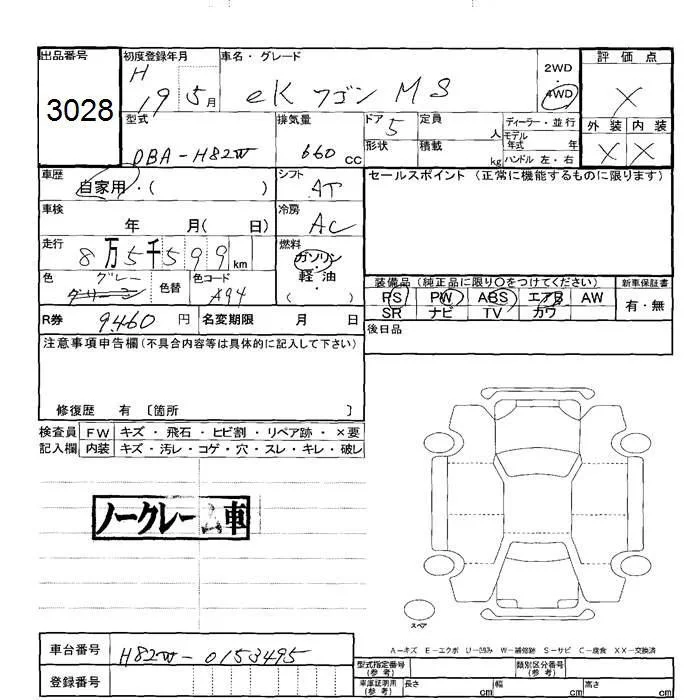 出品番号 初度登録年月 車名・グレード 2WD 評価点
3028 H 19 5月 eK ワゴン MS 4WD X
型式 排気量 ドア 5 定員 人 ディーラー・並行 外装 内装
DBA-H82W 660 cc 形状 積載 kg モデル年式 年 X X
ハンドル 左・右
車歴 自家用・( ) シフト AT セールスポイント (正常に機能するものに限ります)
車検 年 月( 日) 冷房 AC
走行 8万5千599 km 燃料 ガソリン
軽・油
( )
色 グレー 色替 色コード A94
装備品 (純正品に限り○をつけてください) 新車保証書
PS PW ABS エアB AW 有・無
SR ナビ TV カワ
R券 9460 円 名変期限 月 日 後日品
注意事項申告欄(不具合内容等は具体的に記入して下さい)
修復歴 有 〔箇所 〕
検査員 FW キズ・飛石・ヒビ割・リペア跡・×要
記入欄 内装 キズ・汚レ・コゲ・穴・スレ・キレ・破レ
ノークレーム車
スペア
A-キズ E-エクボ U-凹み W-補修跡 S-サビ C-腐食 XX-交換済
車台番号 H82W-0153495 型式指定番号(参考) 類別区分番号(参考)
登録番号 車庫証明用(参考) 長さ cm 幅 cm 高さ cm